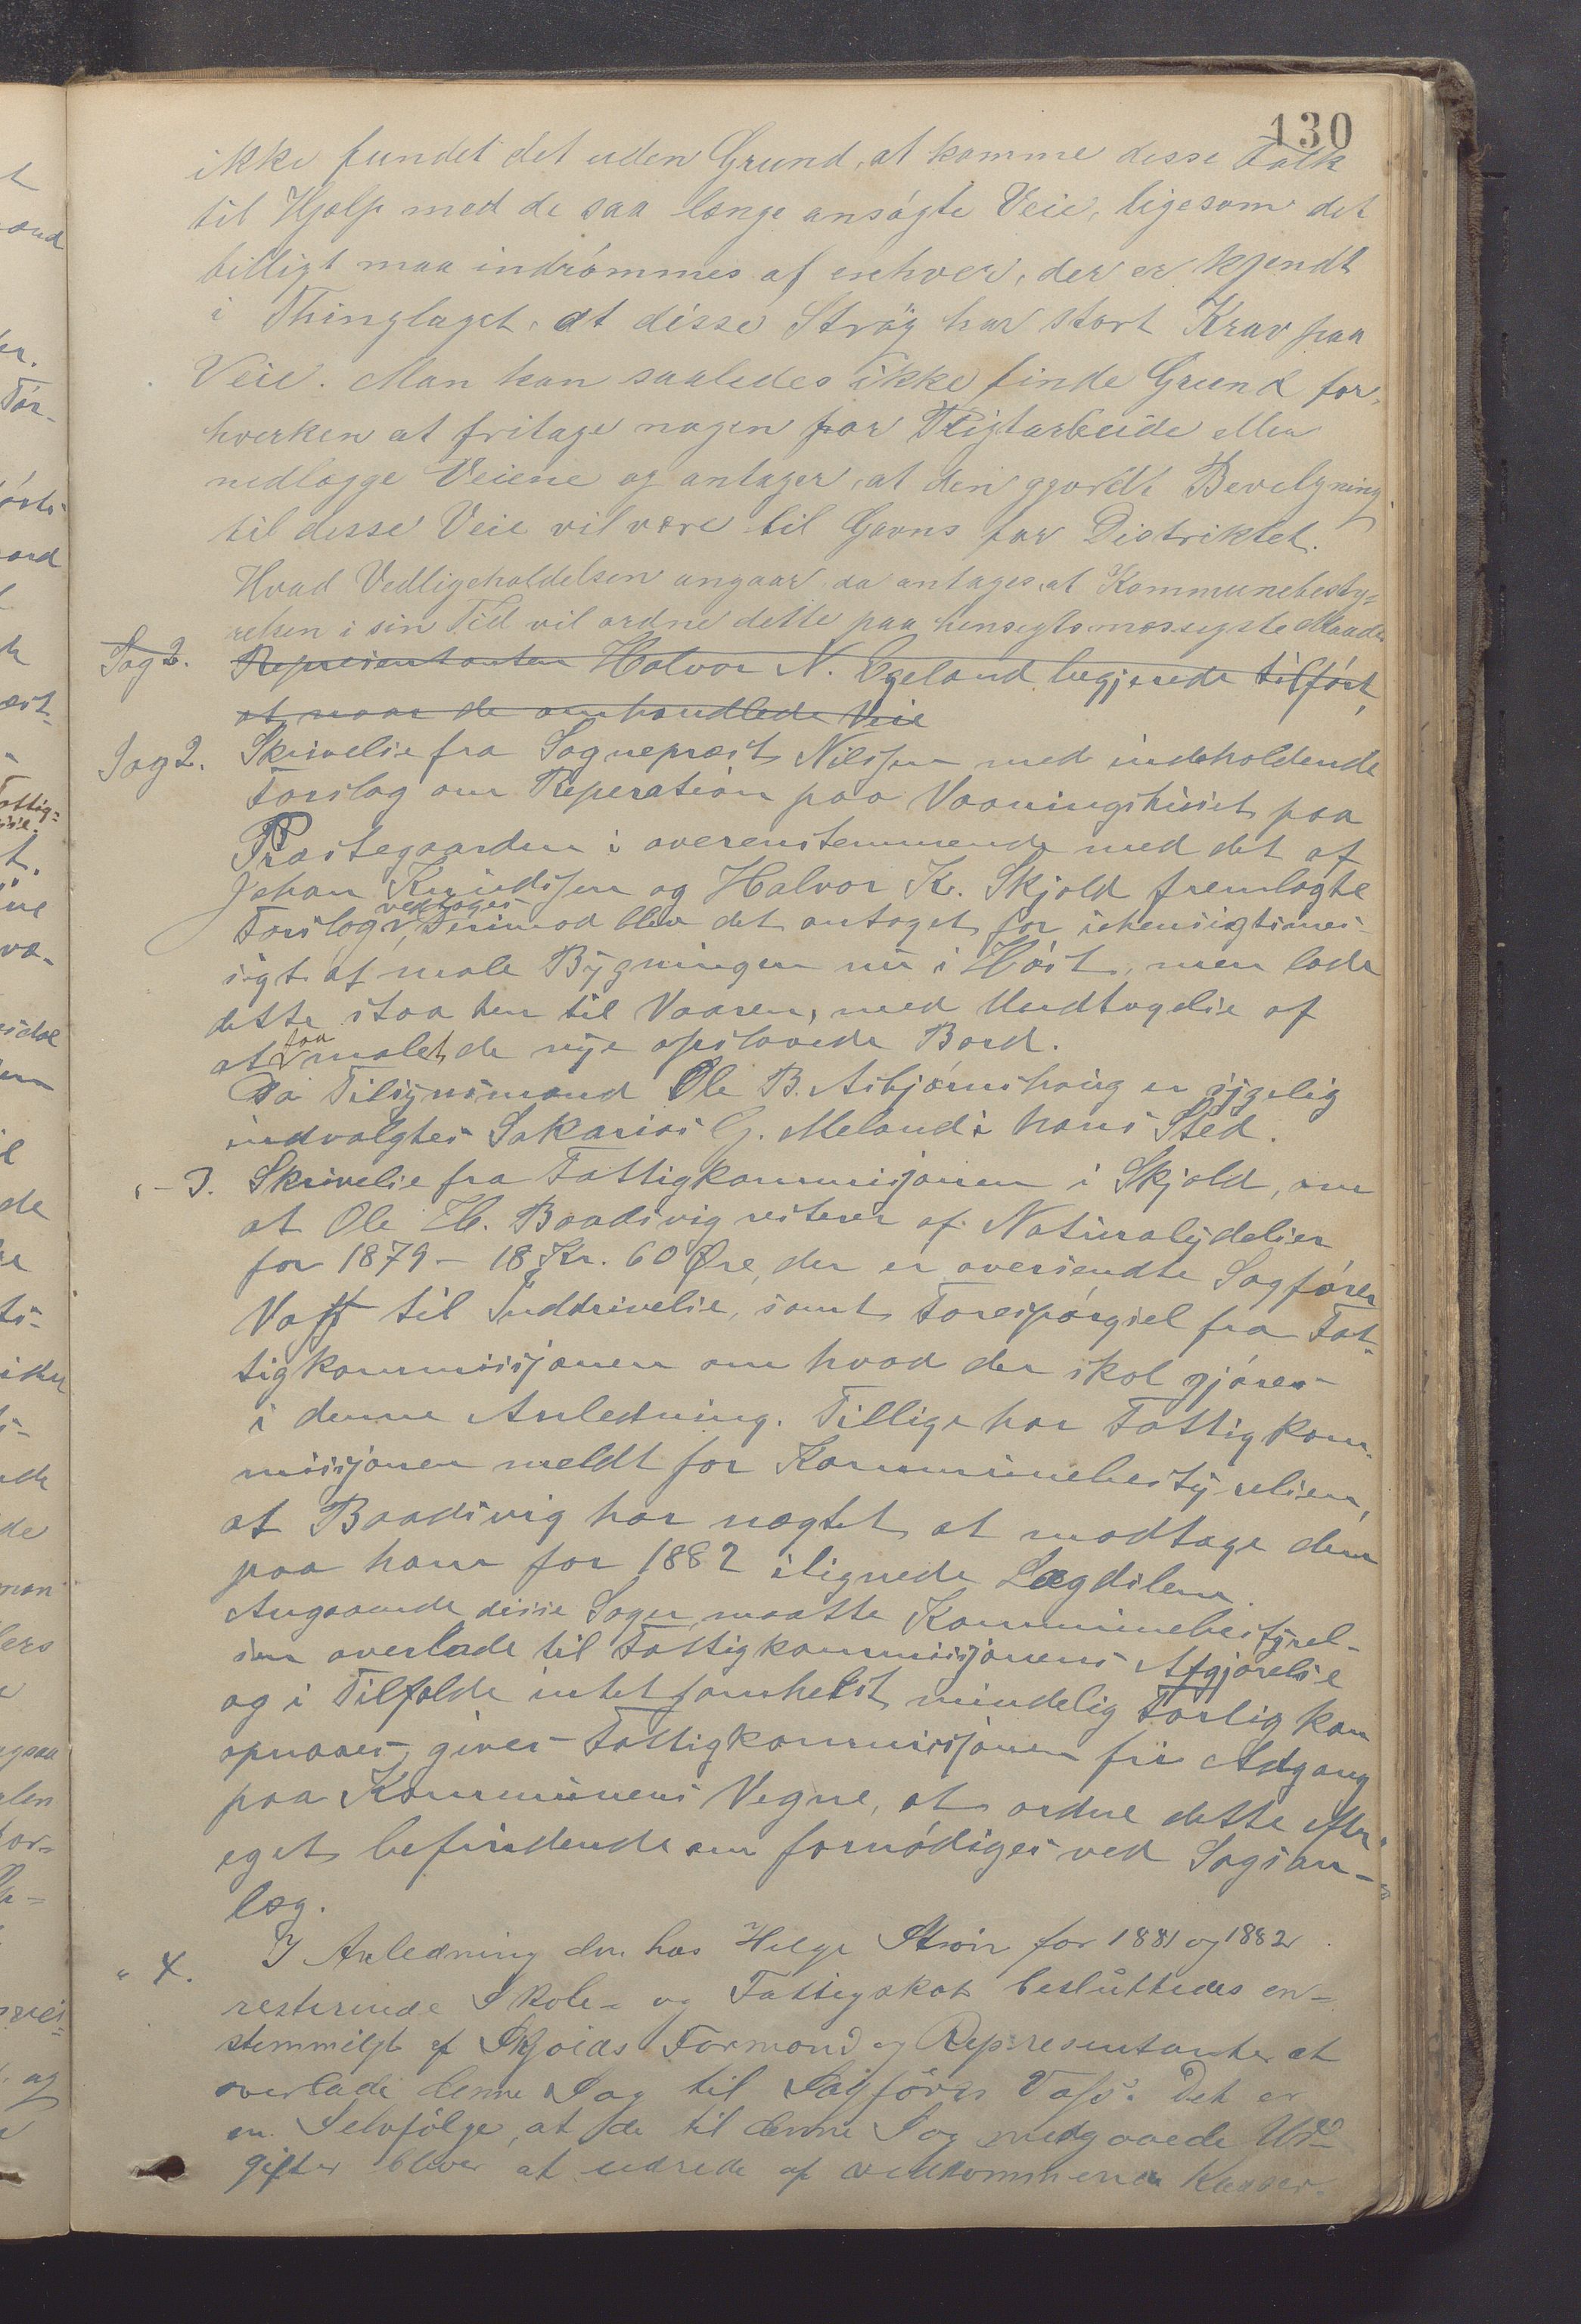 130
ikke fundet det uden Grund, at komme disse Folk
til Hjælp med de saa længe ansøgte Veie, ligesom det
billigt maa indrømmes af enhver, der er kjendt
i Thinglaget, at disse Strøg har stort Krav paa
Veie. Man kan saaledes ikke finde Grund for,
hverken at fritage nogen for Pligtarbeide eller
nedlægge Veiene og antager, at den gjordte Bevilgning
til disse Veie vil være til Gavns for Distriktet.
Hvad Vedligeholdelsen angaar da antages, at Kommunebesty=
relsen i sin Tid vil ordne dette paa hensigtsmæssigste Maade
Sag 2. Representanten Halvor N. Egeland begjerede tilført,
at naar de omhandlede Veie
Sag 2. Skrivelse fra Sognepræst Nilssen med indeholdende
Forslag om Reperation paa Vaaningshuset paa
Præstegaarden i overenstemmende med det af
Johan Knudssen og Halvor K. Skjold fremlagte
Forslag vedtages. Derimod blev det antaget for uhensigtsmes-
sigt at male Bygningen nu i Høst, men lade
dette staa hen til Vaaren, med Undtagelse af
at faa malet de nye opslavede Bord.
Da Tilsynsmand Ole B. Asbjørnshaug er sygelig
indvalgtes Sakarias G. Meland i hans Sted.
" - 3. Skrivelse fra Fattigkommisjonen i Skjold, om
at Ole H. Baadsvig resterer af Naturalydelser
for 1879 - 18 Kr. 60 Øre, der er oversendte Sagfører
Vass til Inddrivelse, samt Forespørgsel fra Fat-
tigkommissjonen om hvad der skal gjøres
i denne Anledning. Tillige har Fattigkom-
missjonen meldt for Kommunebestyrelsen,
at Baadsvig har nægtet at modtage den
paa ham for 1882 ilignede Lægdslem.
Angaaende disse Sager maatte Kommunebestyrel-
sen overlade til Fattigkommissjonens Afgjørelse
og i Tilfælde intetsomhelst mindelig Forlig kan
opnaaes, gives Fattigkommissjonen fri Adgang
paa Kommunens Vegne, at ordne dette efter
eget befindende om fornødiges ved Sagsan-
læg.
" 4. I Anledning den hos Helge for 1881 og 1882
resterende Skole- og Fattigskat besluttedes en-
stemmigt af Skjolds Formænd og Representanter at
overlade denne Sag til Sagfører Vass. Det er
en Selvfølge, at de til denne Sag medgaaede Ud-
gifter bliver at udrede af vedkommende Kasser.